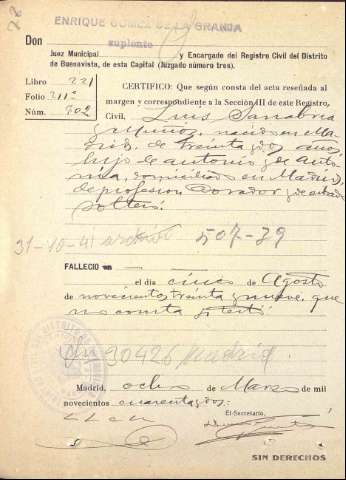 ENRIQUE GOMEZ DE LA GRANJA
Don
Juez Municipal suplente y Encargado del Registro Civil del Distrito
de Buenavista, de esta Capital (Juzgado número tres).
Libro 221
Folio 211º
Núm. 702
CERTIFICO: Que según consta del acta reseñada al
margen y correspondiente a la Sección III de este Registro
Civil, Luis Sanabria
y Muñoz, nacido en Ma-
drid, de treinta y dos años
hijo de Antonio y de Anto-
nia, domiciliado en Madrid,
de profesion Dorador y de estado
soltero.
31-10-41 507-39
FALLECIO en
el día cinco de Agosto
de novecientos treinta y nueve, que
no consta si testó
90426 Madrid
Madrid, ocho de Marzo de mil
novecientos cuarenta y dos:
El Secretario,
SIN DERECHOS